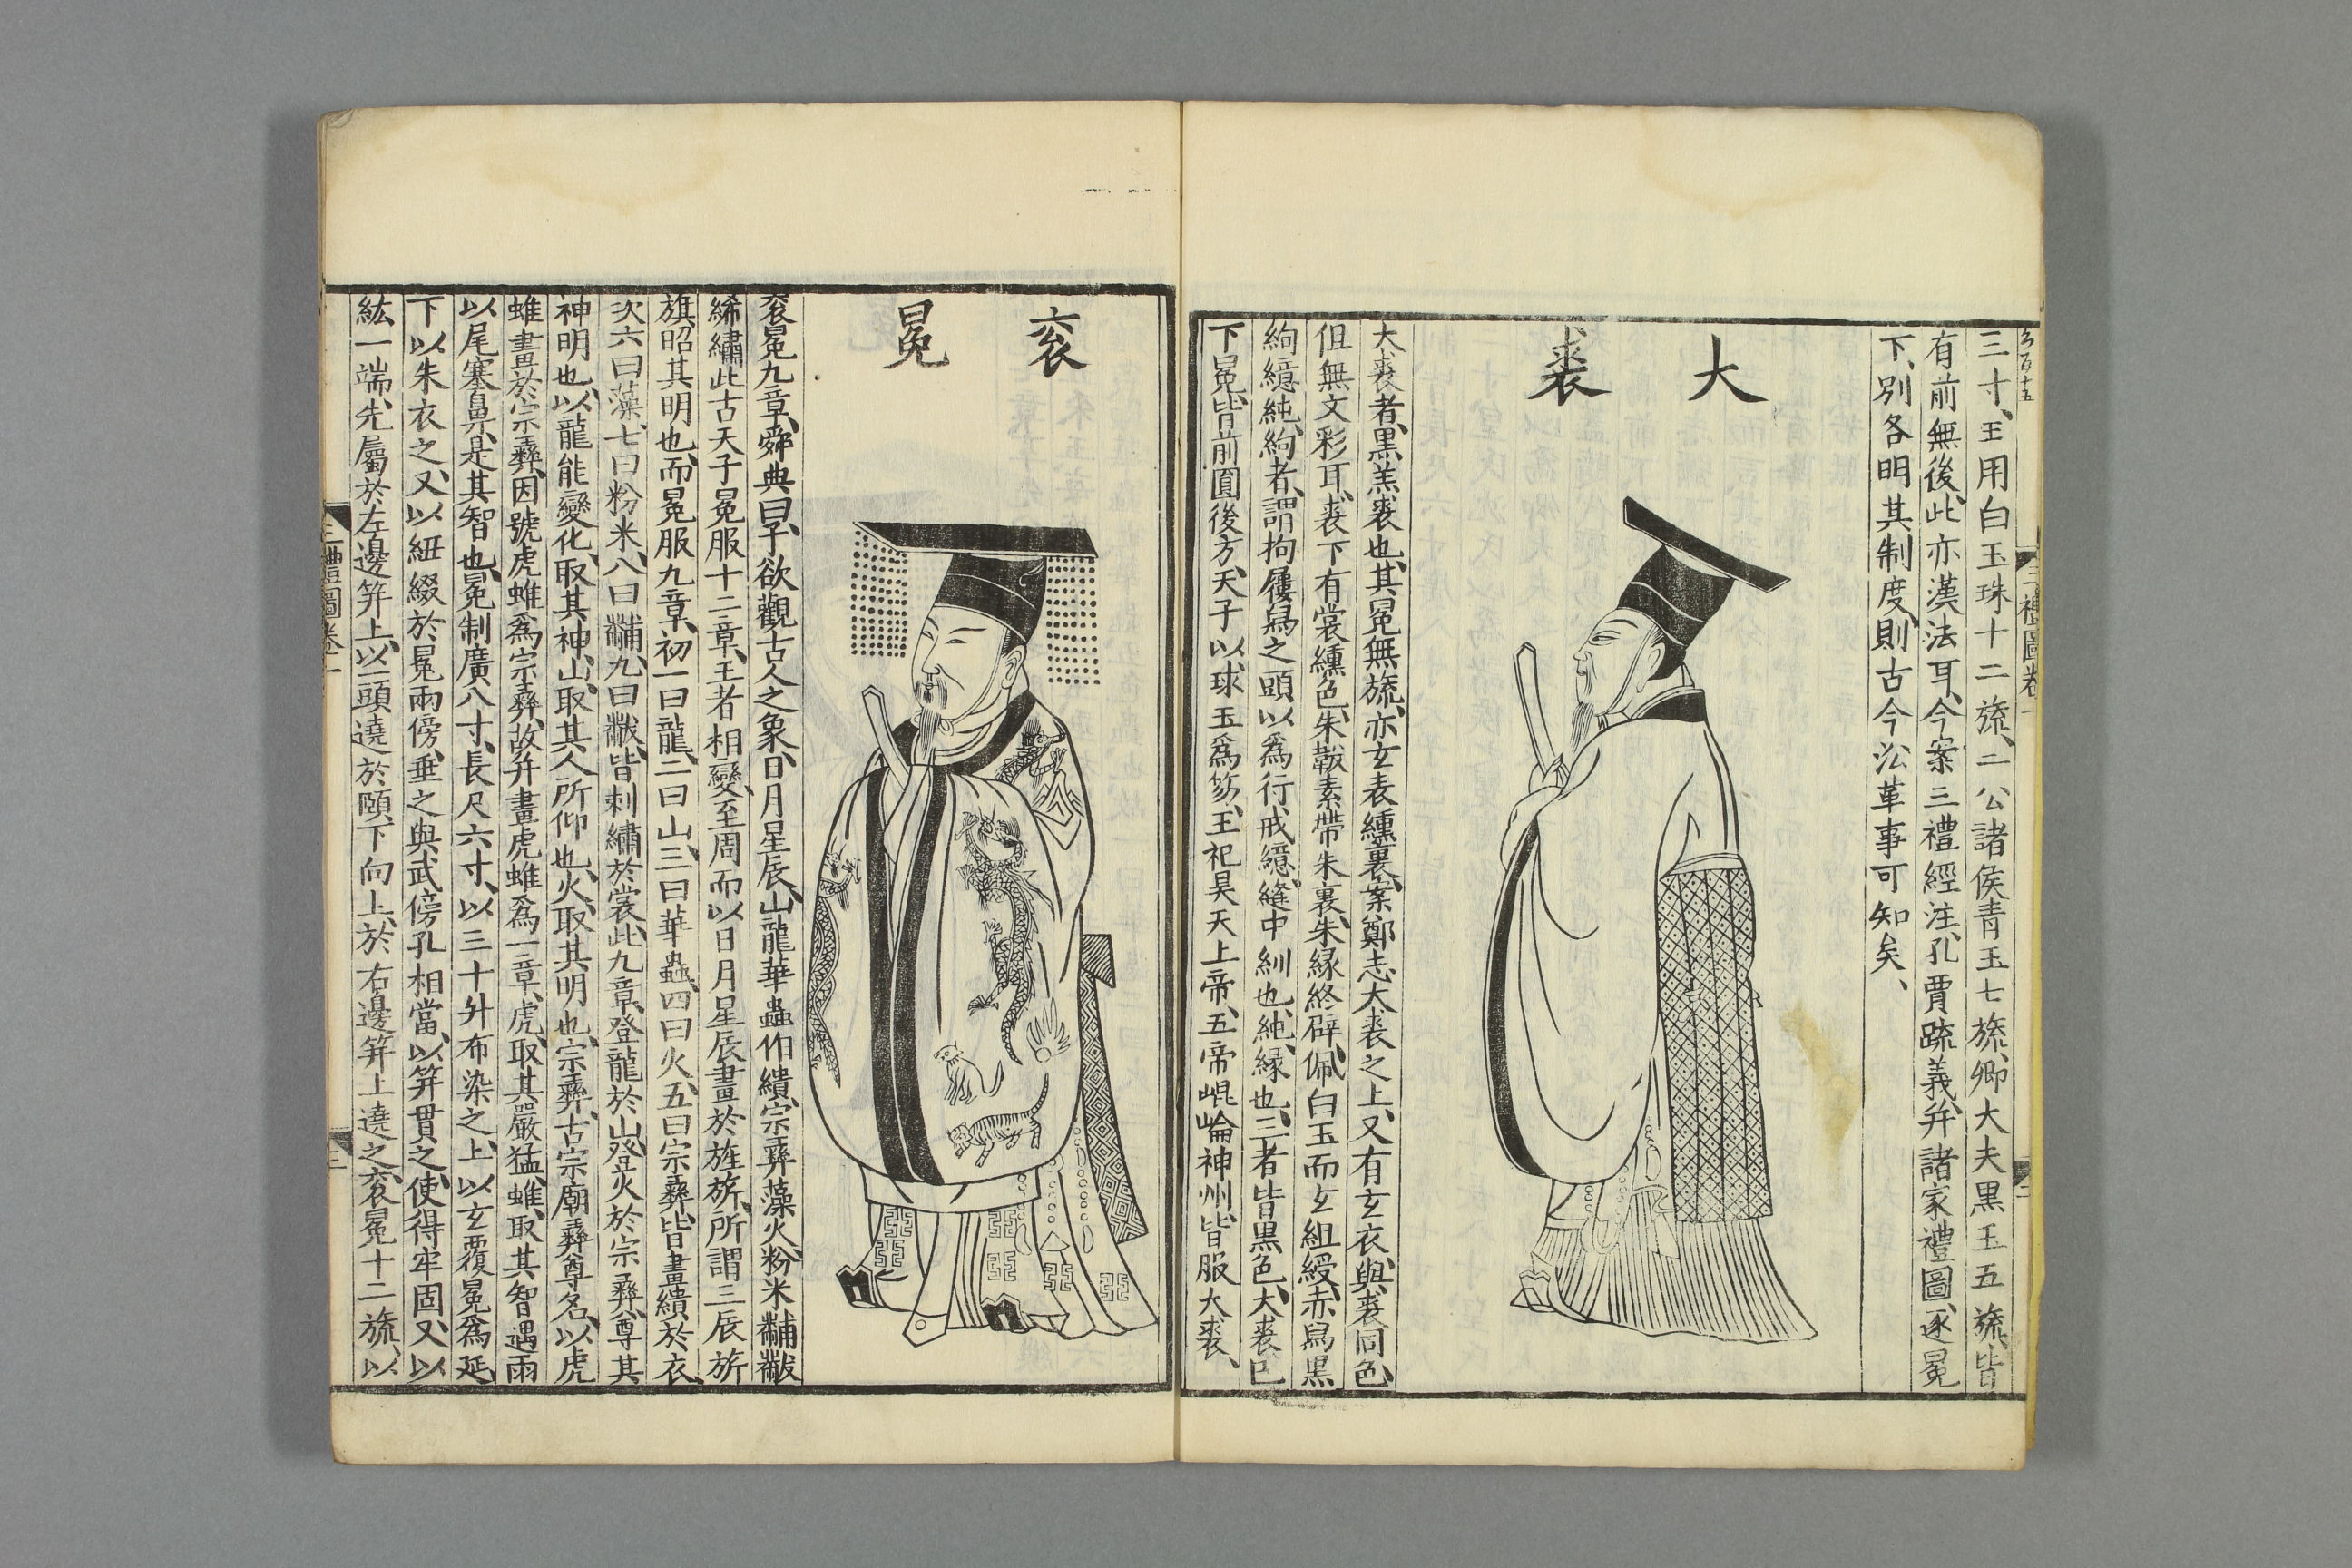 三寸王用白玉珠十二旒二公諸侯青玉七旒卿大夫黑玉五旒皆
有前無後此亦漢法耳今案三禮經注孔賈疏義并諸家禮圖逐冕
下別各明其制度則古今沿革事可知矣
大裘
大裘者黑羔裘也其冕無旒亦玄表纁裏案鄭志大裘之上又有玄衣與裘同色
但無文彩耳裘下有裳纁色朱韍素帶朱裏朱緣終辟佩白玉而玄組綬赤舄黑
絇繶純絇者謂拘屨舄之頭以爲行戒繶縫中紃也純緣也三者皆黑色大裘已
下冕皆前圓後方天子以球玉爲笏王祀昊天上帝五帝崐崘神州皆服大裘
三禮圖卷一
二
袞冕
袞冕九章舜典曰予欲觀古人之象日月星辰山龍華蟲作繢宗彝藻火粉米黼黻
絺繡此古天子冕服十二章王者相變至周而以日月星辰畫於旌旂所謂三辰旂
旗昭其明也而冕服九章初一曰龍二曰山三曰華蟲四曰火五曰宗彝皆畫繢於衣
次六曰藻七曰粉米八曰黼九曰黻皆刺繡於裳此九章登龍於山登火於宗彝尊其
神明也以龍能變化取其神山取其人所仰也火取其明也宗彝古宗廟彝尊名以虎
蜼畫於宗彝因號虎蜼爲宗彝故并畫虎蜼爲一章虎取其嚴猛蜼取其智遇雨
以尾塞鼻是其智也冕制廣八寸長尺六寸以三十升布染之上以玄覆冕爲延
下以朱衣之又以紐綴於冕兩傍垂之與武傍孔相當以笄貫之使得牢固又以
紘一端先屬於左邊笄上以一頭遶於頤下向上於右邊笄上遶之袞冕十二旒以
三禮圖卷一
三